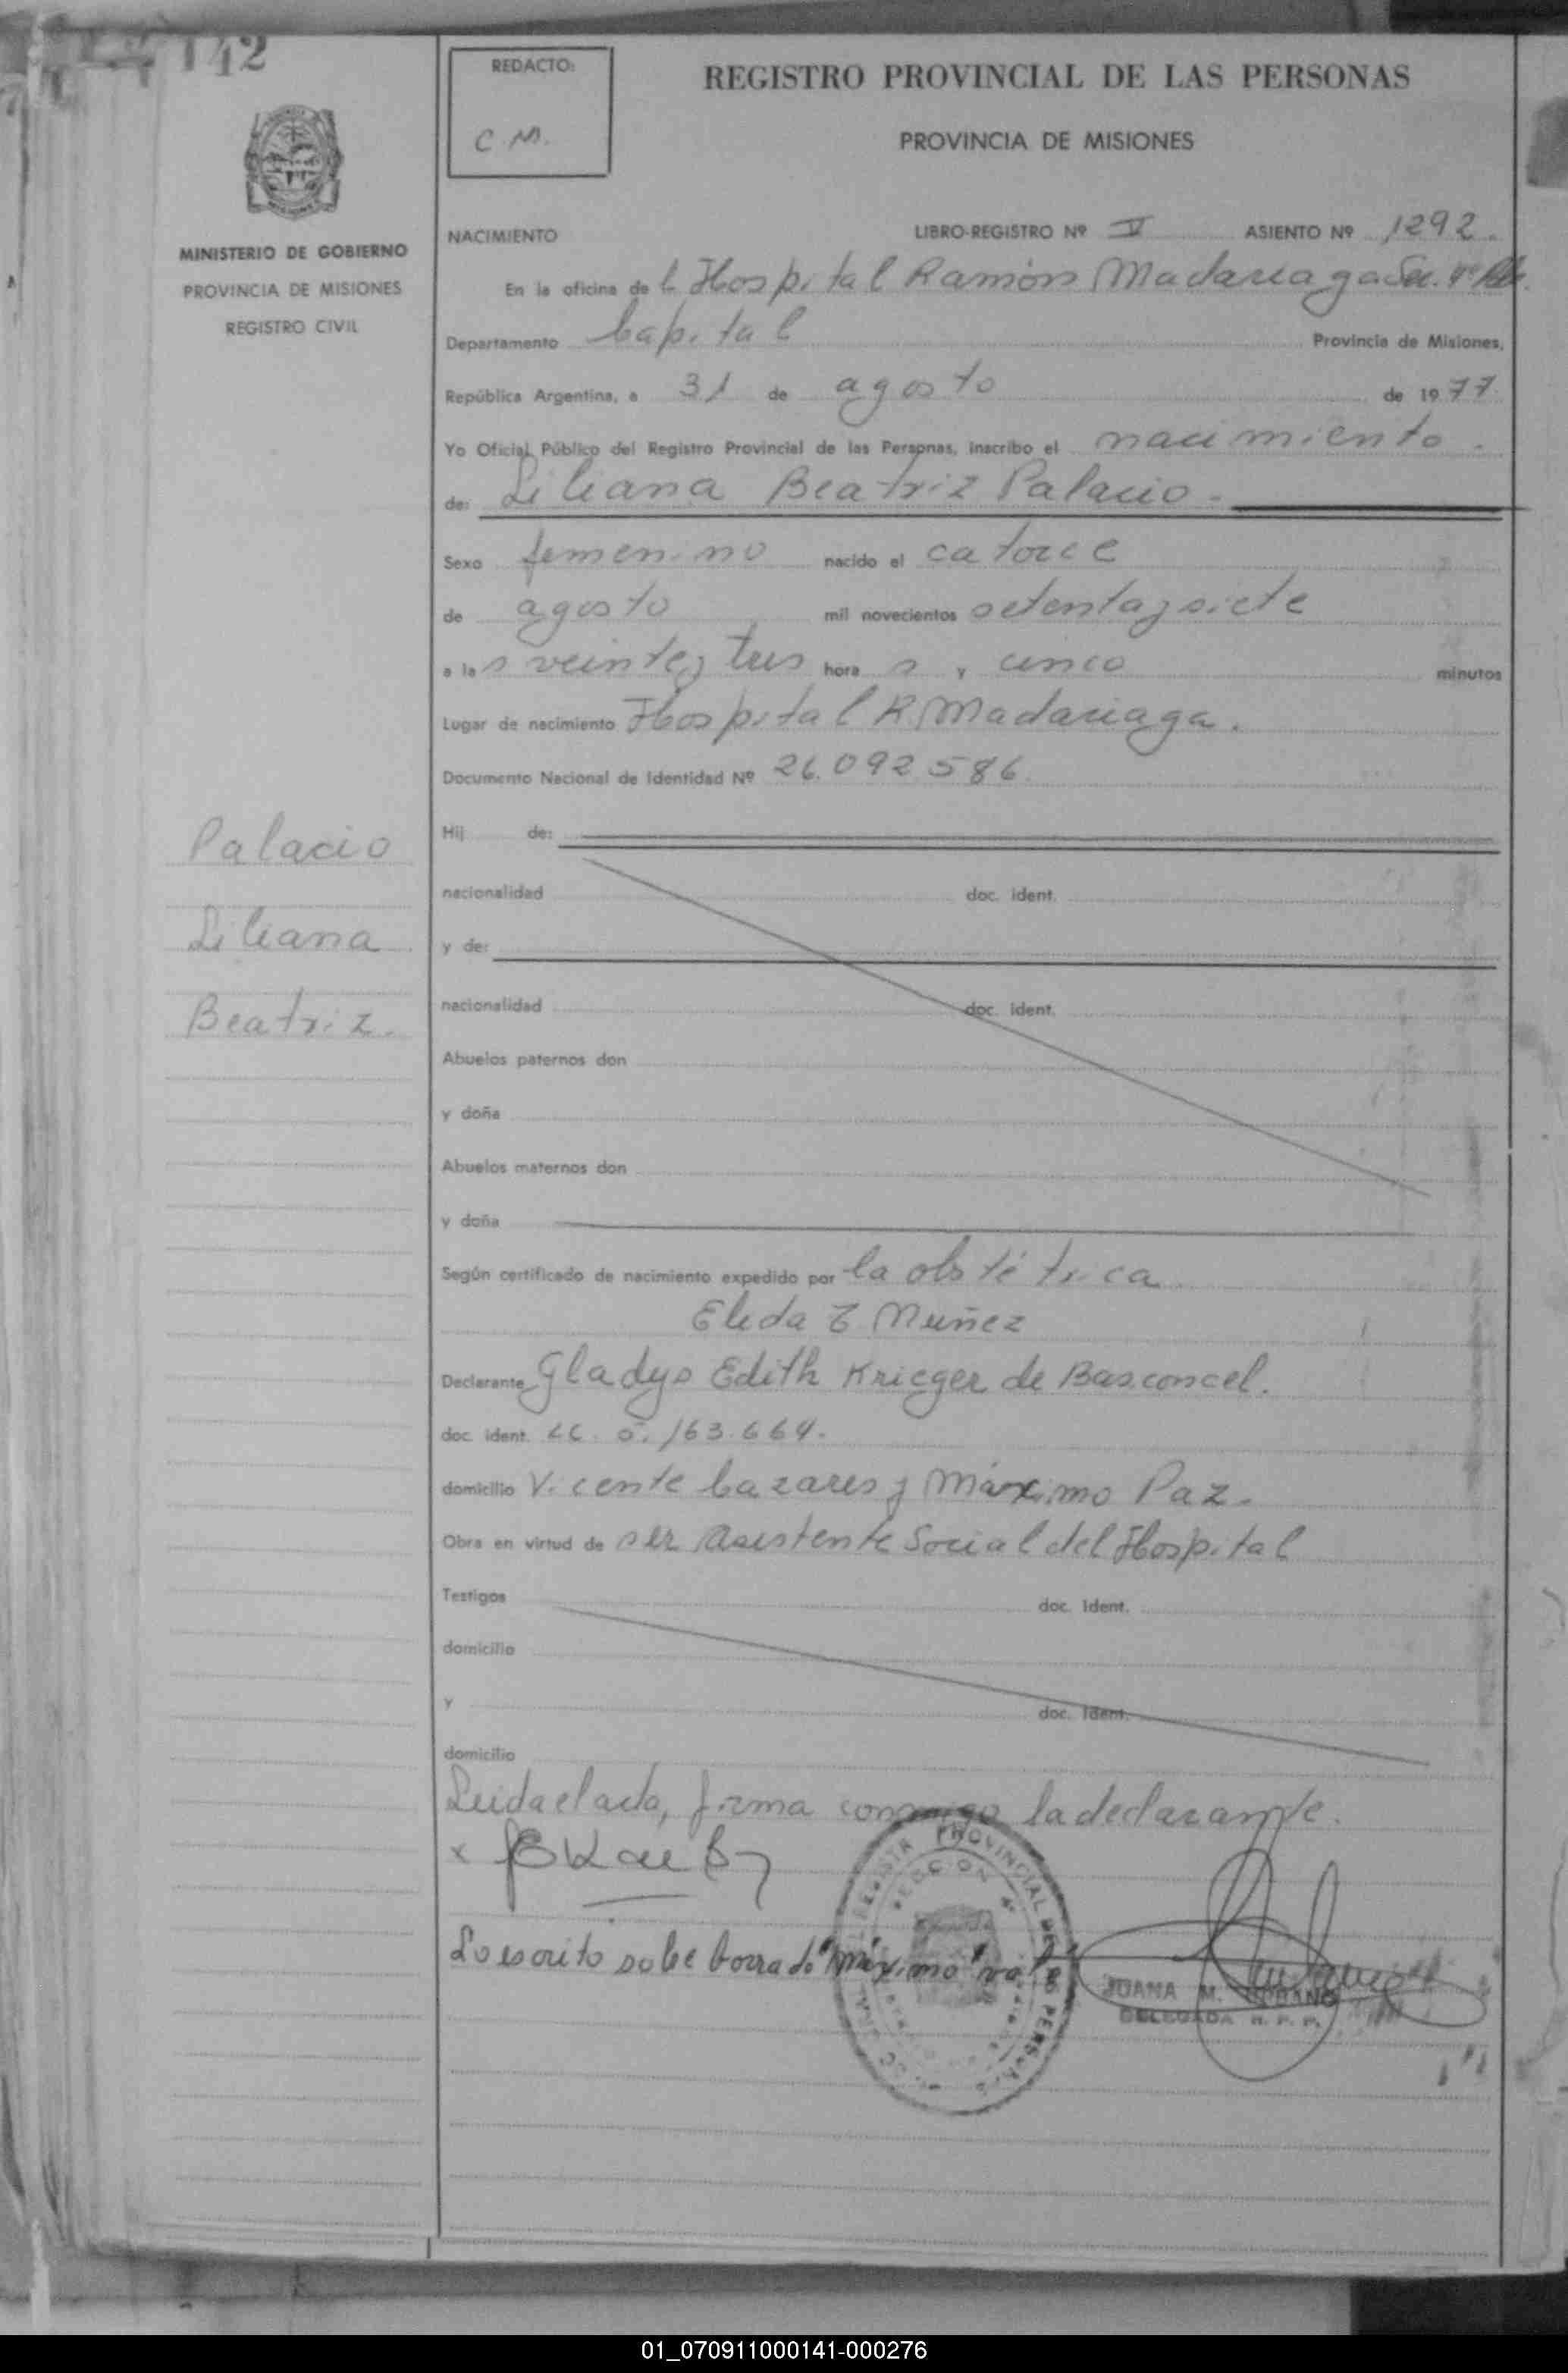 142
REDACTO:
C. M.
REGISTRO PROVINCIAL DE LAS PERSONAS
PROVINCIA DE MISIONES
MINISTERIO DE GOBIERNO
PROVINCIA DE MISIONES
REGISTRO CIVIL
NACIMIENTO LIBRO-REGISTRO Nº V ASIENTO Nº 1292.
En la oficina del Hospital Ramón Madariaga Sec. 4º
Departamento Capital Provincia de Misiones,
República Argentina, a 31 de agosto de 1977
Yo Oficial Público del Registro Provincial de las Personas, inscribo el nacimiento.
de: Liliana Beatriz Palacio.
Sexo femenino nacido el catorce
de agosto mil novecientos setenta y siete
a las veinte y tres horas y cinco minutos
Lugar de nacimiento Hospital R. Madariaga.
Documento Nacional de Identidad Nº 26.092.586.
Hij de:
nacionalidad doc. ident.
y de:
nacionalidad doc. ident.
Abuelos paternos don
y doña
Abuelos maternos don
y doña
Palacio
Liliana
Beatriz.
Según certificado de nacimiento expedido por la obstétrica
Eleda E Muñez
Declarante Gladys Edith Krieger de Basconcel.
doc. ident. LC. 5.163.664.
domicilio Vicente Cazares y Máximo Paz.
Obra en virtud de ser Asistente Social del Hospital
Testigos doc. Ident.
domicilio
y doc. Ident.
domicilio
Leida el acta, firma conmigo la declarante.
x
Lo escrito sobe borrado "máximo" vale
REGISTRO PROVINCIAL DE LAS PERSONAS
SECCION 4ª
JUANA M. LUBANO
DELEGADA R. P. P.
01_070911000141-000276